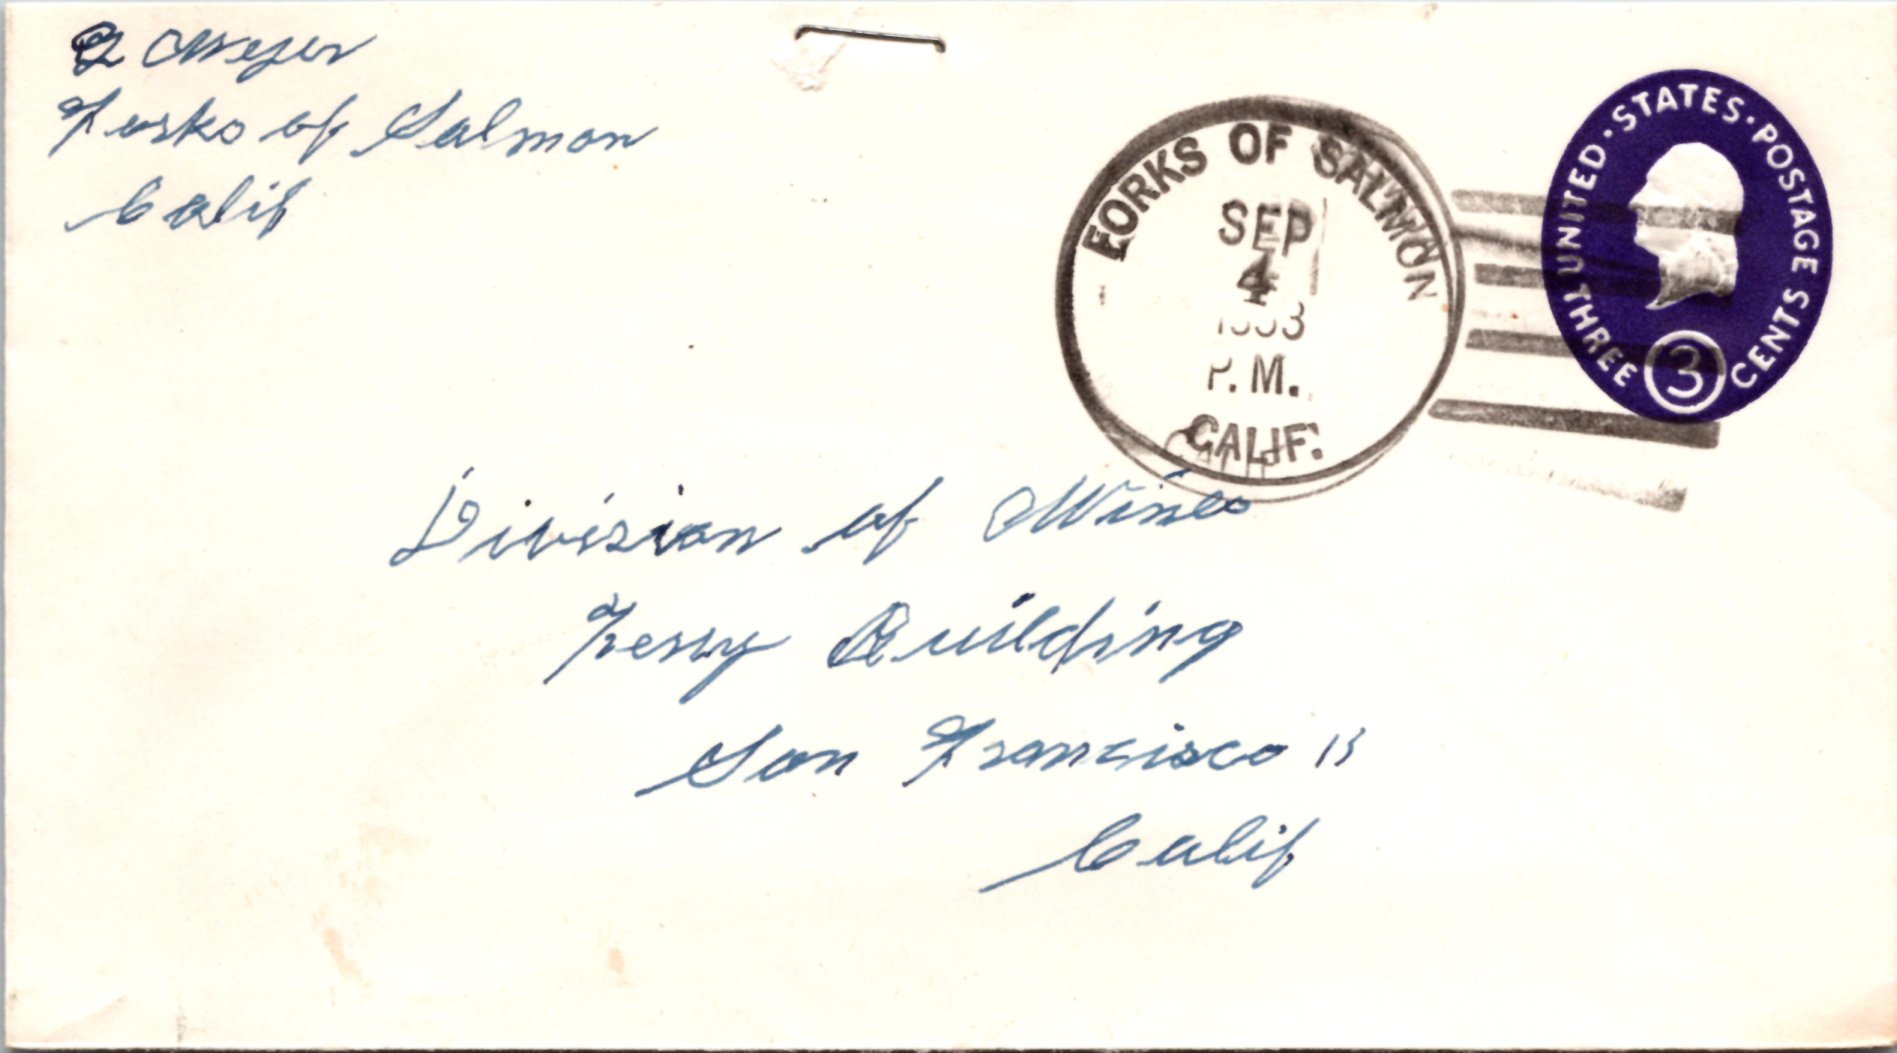 Meyer
Forks of Salmon
Calif
FORKS OF SALMON
SEP
4
1953
P. M.
CALIF.
UNITED · STATES · POSTAGE
THREE 3 CENTS
Division of Mines
Ferry Building
San Francisco 11
Calif